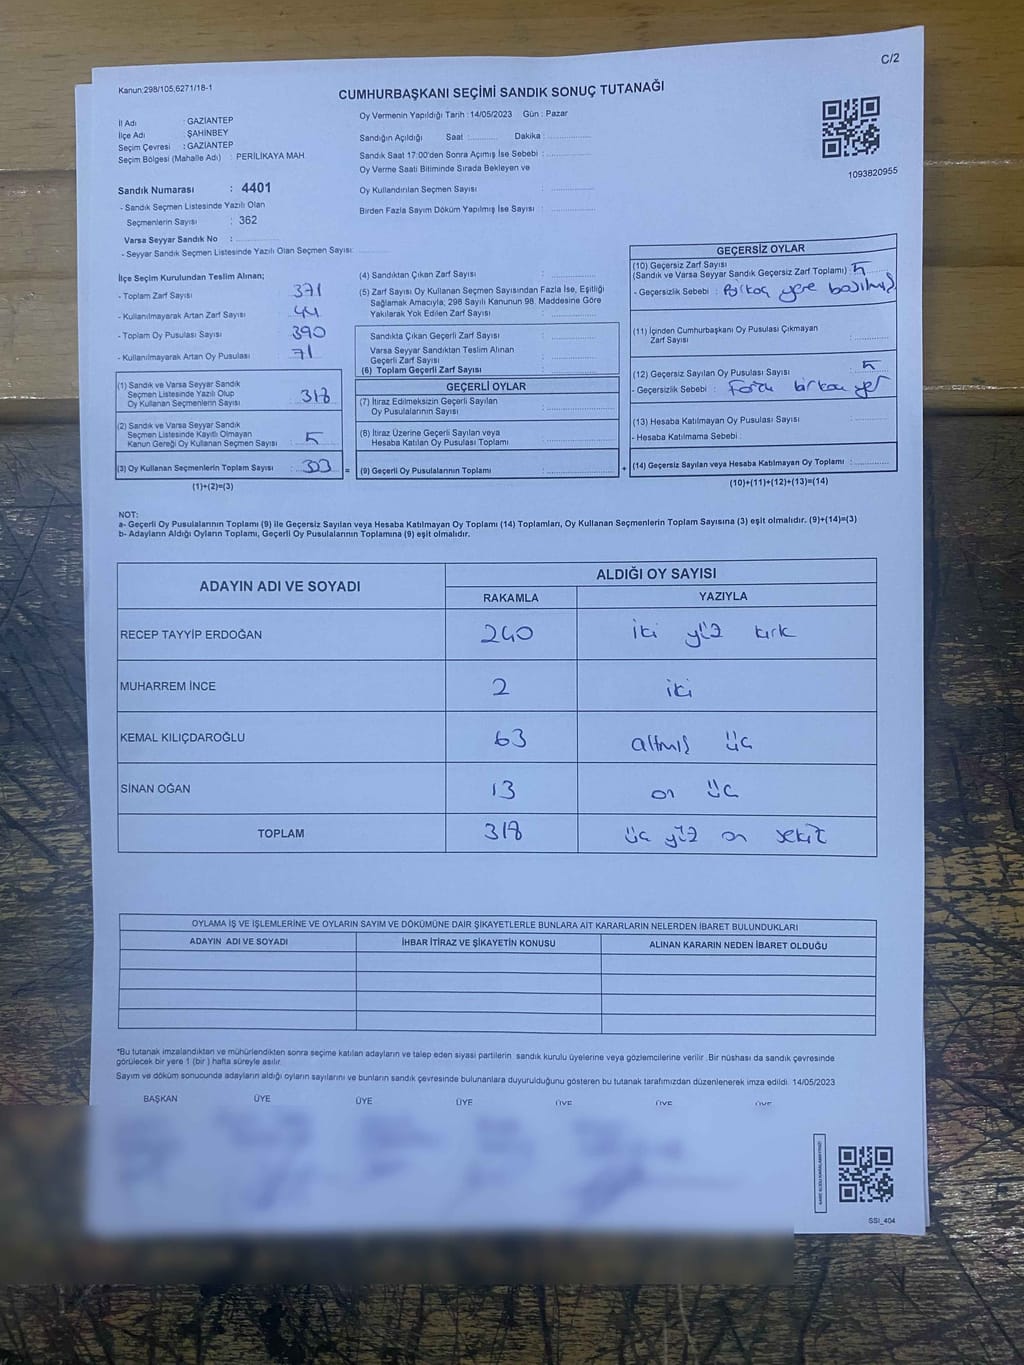 C/2
Kanun:298/105,6271/18-1
CUMHURBAŞKANI SEÇİMİ SANDIK SONUÇ TUTANAĞI
İl Adı : GAZİANTEP
İlçe Adı ŞAHİNBEY
Seçim Çevresi : GAZİANTEP
Seçim Bölgesi (Mahalle Adı) : PERİLİKAYA MAH.
Sandık Numarası : 4401
- Sandık Seçmen Listesinde Yazılı Olan
Seçmenlerin Sayısı : 362
Varsa Seyyar Sandık No :
- Seyyar Sandık Seçmen Listesinde Yazılı Olan Seçmen Sayısı:
Oy Vermenin Yapıldığı Tarih : 14/05/2023 Gün : Pazar
Sandığın Açıldığı Saat : Dakika :
Sandık Saat 17:00'den Sonra Açımış İse Sebebi :
Oy Verme Saati Bitiminde Sırada Bekleyen ve
Oy Kullandırılan Seçmen Sayısı :
Birden Fazla Sayım Döküm Yapılmış İse Sayısı :
1093820955
İlçe Seçim Kurulundan Teslim Alınan;
- Toplam Zarf Sayısı 371
- Kullanılmayarak Artan Zarf Sayısı 44
- Toplam Oy Pusulası Sayısı 390
- Kullanılmayarak Artan Oy Pusulası 71
(1) Sandık ve Varsa Seyyar Sandık
Seçmen Listesinde Yazılı Olup
Oy Kullanan Seçmenlerin Sayısı : 318
(2) Sandık ve Varsa Seyyar Sandık
Seçmen Listesinde Kayıtlı Olmayan
Kanun Gereği Oy Kullanan Seçmen Sayısı : 5
(3) Oy Kullanan Seçmenlerin Toplam Sayısı : 323 =
(1)+(2)=(3)
(4) Sandıktan Çıkan Zarf Sayısı :
(5) Zarf Sayısı Oy Kullanan Seçmen Sayısından Fazla İse, Eşitliği
Sağlamak Amacıyla; 298 Sayılı Kanunun 98. Maddesine Göre
Yakılarak Yok Edilen Zarf Sayısı :
Sandıkta Çıkan Geçerli Zarf Sayısı :
Varsa Seyyar Sandıktan Teslim Alınan
Geçerli Zarf Sayısı :
(6) Toplam Geçerli Zarf Sayısı :
GEÇERLİ OYLAR
(7) İtiraz Edilmeksizin Geçerli Sayılan
Oy Pusulalarının Sayısı :
(8) İtiraz Üzerine Geçerli Sayılan veya
Hesaba Katılan Oy Pusulası Toplamı :
(9) Geçerli Oy Pusulalarının Toplamı : +
GEÇERSİZ OYLAR
(10) Geçersiz Zarf Sayısı
(Sandık ve Varsa Seyyar Sandık Geçersiz Zarf Toplamı) : 5
- Geçersizlik Sebebi : yere basılmış
(11) İçinden Cumhurbaşkanı Oy Pusulası Çıkmayan
Zarf Sayısı :
(12) Geçersiz Sayılan Oy Pusulası Sayısı : 5
- Geçersizlik Sebebi : Fazla birkaç yer
(13) Hesaba Katılmayan Oy Pusulası Sayısı :
- Hesaba Katılmama Sebebi :
(14) Geçersiz Sayılan veya Hesaba Katılmayan Oy Toplamı :
(10)+(11)+(12)+(13)=(14)
NOT:
a- Geçerli Oy Pusulalarının Toplamı (9) ile Geçersiz Sayılan veya Hesaba Katılmayan Oy Toplamı (14) Toplamları, Oy Kullanan Seçmenlerin Toplam Sayısına (3) eşit olmalıdır. (9)+(14)=(3)
b- Adayların Aldığı Oyların Toplamı, Geçerli Oy Pusulalarının Toplamına (9) eşit olmalıdır.
ADAYIN ADI VE SOYADI ALDIĞI OY SAYISI
RAKAMLA YAZIYLA
RECEP TAYYİP ERDOĞAN 240 iki yüz kırk
MUHARREM İNCE 2 iki
KEMAL KILIÇDAROĞLU 63 altmış üç
SİNAN OĞAN 13 on üç
TOPLAM 318 üç yüz on sekiz
OYLAMA İŞ VE İŞLEMLERİNE VE OYLARIN SAYIM VE DÖKÜMÜNE DAİR ŞİKAYETLERLE BUNLARA AİT KARARLARIN NELERDEN İBARET BULUNDUKLARI
ADAYIN ADI VE SOYADI İHBAR İTİRAZ VE ŞİKAYETİN KONUSU ALINAN KARARIN NEDEN İBARET OLDUĞU
*Bu tutanak imzalandıktan ve mühürlendikten sonra seçime katılan adayların ve talep eden siyasi partilerin sandık kurulu üyelerine veya gözlemcilerine verilir .Bir nüshası da sandık çevresinde
görülecek bir yere 1 (bir ) hafta süreyle asılır.
Sayım ve döküm sonucunda adayların aldığı oyların sayılarını ve bunların sandık çevresinde bulunanlara duyurulduğunu gösteren bu tutanak tarafımızdan düzenlenerek imza edildi. 14/05/2023
BAŞKAN ÜYE ÜYE ÜYE ÜYE ÜYE ÜYE
SSI_404